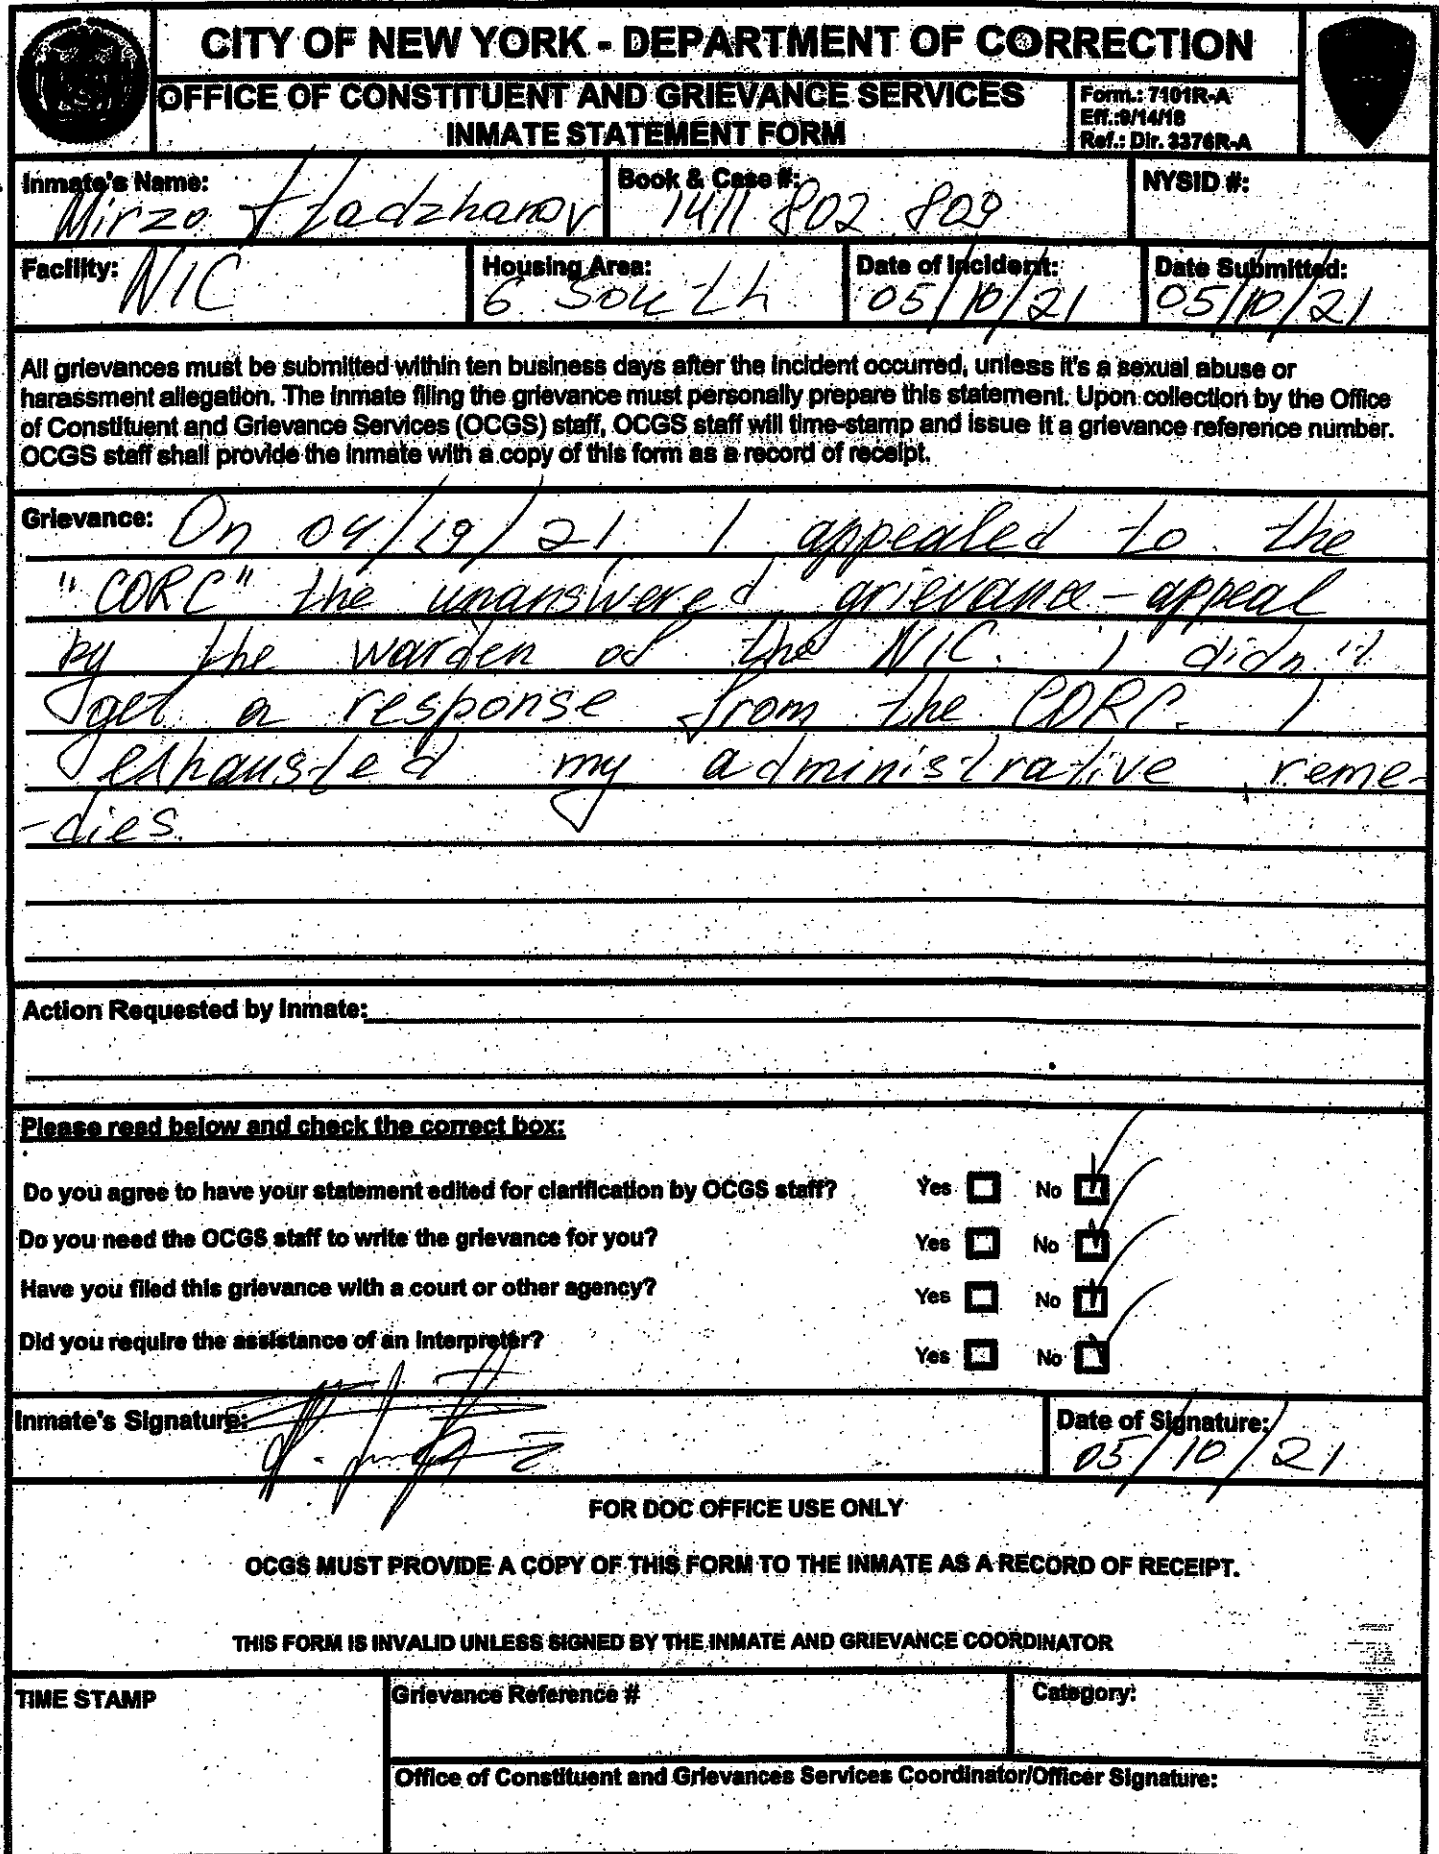 CITY OF NEW YORK - DEPARTMENT OF CORRECTION
OFFICE OF CONSTITUENT AND GRIEVANCE SERVICES
INMATE STATEMENT FORM
Form.: 7101R-A
Eff.:9/14/18
Ref.: Dir. 3376R-A
Inmate's Name: Mirzo Atadzhanov
Book & Case #: 1411 802 809
NYSID #:
Facility: NIC
Housing Area: 6 South
Date of Incident: 05/10/21
Date Submitted: 05/10/21
All grievances must be submitted within ten business days after the incident occurred, unless it's a sexual abuse or
harassment allegation. The inmate filing the grievance must personally prepare this statement. Upon collection by the Office
of Constituent and Grievance Services (OCGS) staff, OCGS staff will time-stamp and issue it a grievance reference number.
OCGS staff shall provide the inmate with a copy of this form as a record of receipt.
Grievance: On 04/19/21 I appealed to the
"CORC" the unanswered grievance-appeal
by the warden of the NIC. I didn't
get a response from the CORC. I
exhausted my administrative reme-
-dies.
Action Requested by Inmate:
Please read below and check the correct box:
Do you agree to have your statement edited for clarification by OCGS staff? Yes No
Do you need the OCGS staff to write the grievance for you? Yes No
Have you filed this grievance with a court or other agency? Yes No
Did you require the assistance of an interpreter? Yes No
Inmate's Signature:
Date of Signature: 05/10/21
FOR DOC OFFICE USE ONLY
OCGS MUST PROVIDE A COPY OF THIS FORM TO THE INMATE AS A RECORD OF RECEIPT.
THIS FORM IS INVALID UNLESS SIGNED BY THE INMATE AND GRIEVANCE COORDINATOR
TIME STAMP
Grievance Reference #
Category:
Office of Constituent and Grievances Services Coordinator/Officer Signature: